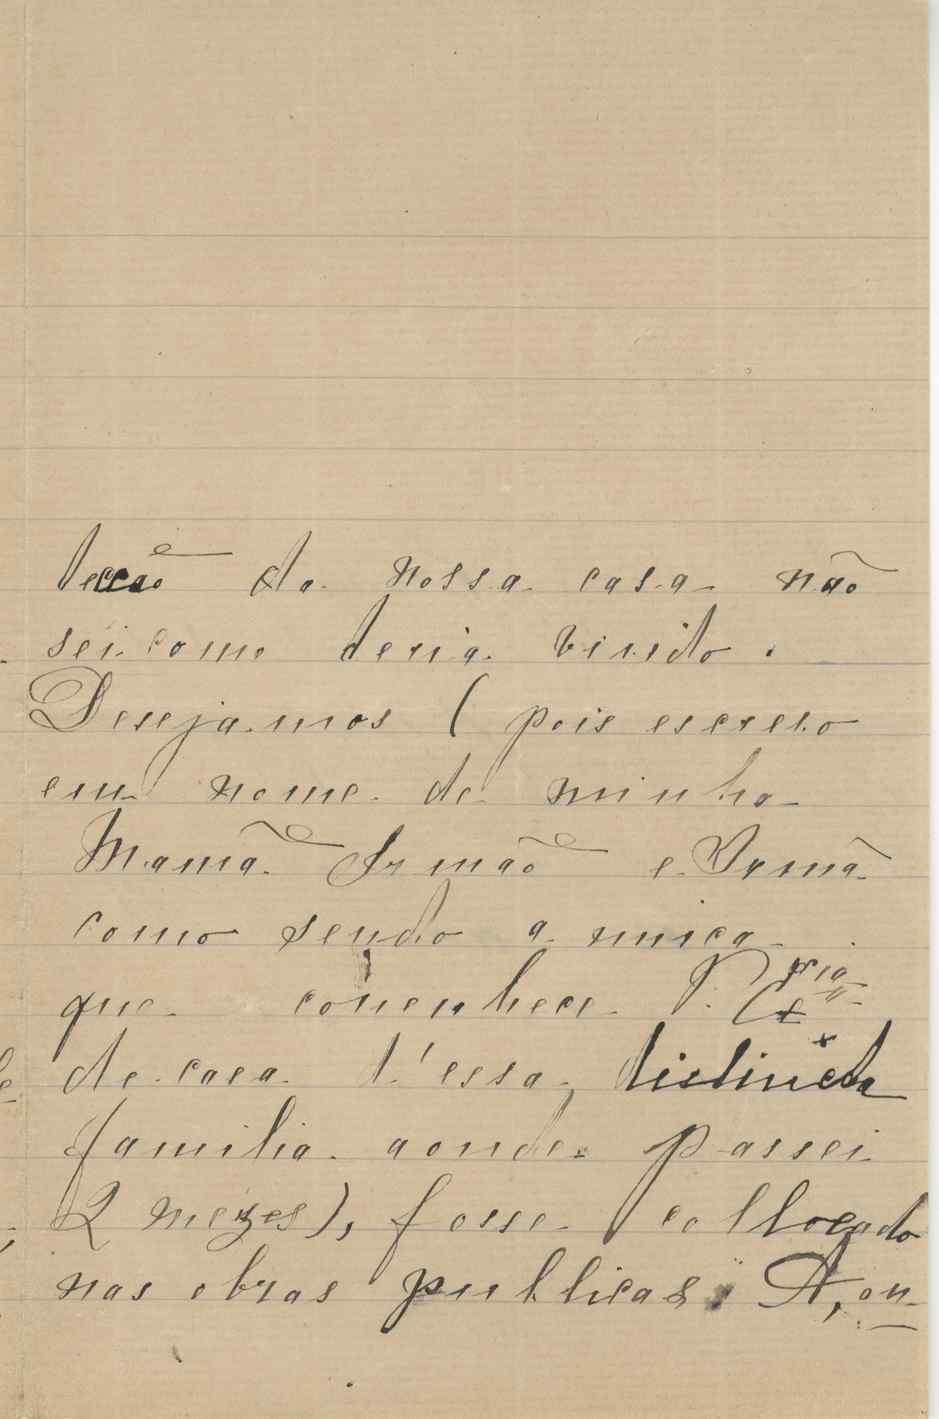 lecção da nossa casa não
sei como teria vindo.
Desejamos (pois escrevo
em nome de minha
Mamã Irmão e Irmã
como sendo a unica
que conenhece V. Ex.
de casa d'essa distincta
familia aonde passei
2 mezes), fosse collocado
nas obras publicas; A, on-